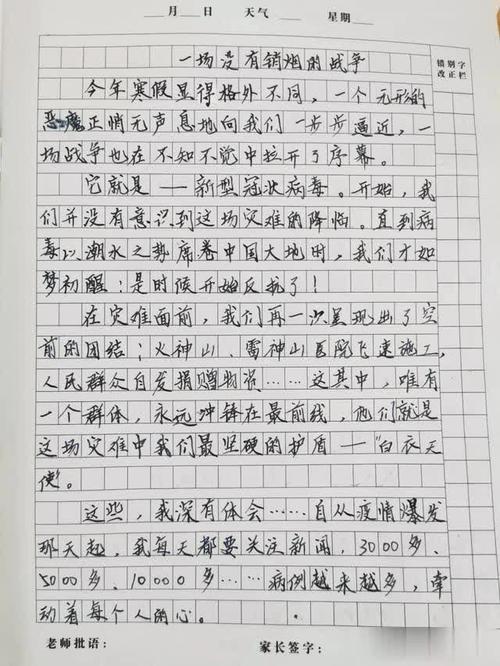 ____月____日 天气____ 星期____
一场没有销烟的战争
错别字
改正栏
今年寒假显得格外不同，一个无形的
恶魔正悄无声息地向我们一步步逼近，一
场战争也在不知不觉中拉开了序幕。
它就是——新型冠状病毒。开始，我
们并没有意识到这场灾难的降临。直到病
毒以潮水之势席卷中国大地时，我们才如
梦初醒：是时候开始反抗了！
在灾难面前，我们再一次呈现出了空
前的团结：火神山、雷神山医院飞速施工，
人民群众自发捐赠物资……这其中，唯有
一个群体，永远冲锋在最前线，他们就是
这场灾难中我们最坚硬的护盾——“白衣天
使。
这些，我深有体会……自从疫情爆发
那天起，我每天都要关注新闻，3000多、
5000多、10000多……病例越来越多，牵
动着每个人的心。
老师批语： 家长签字：